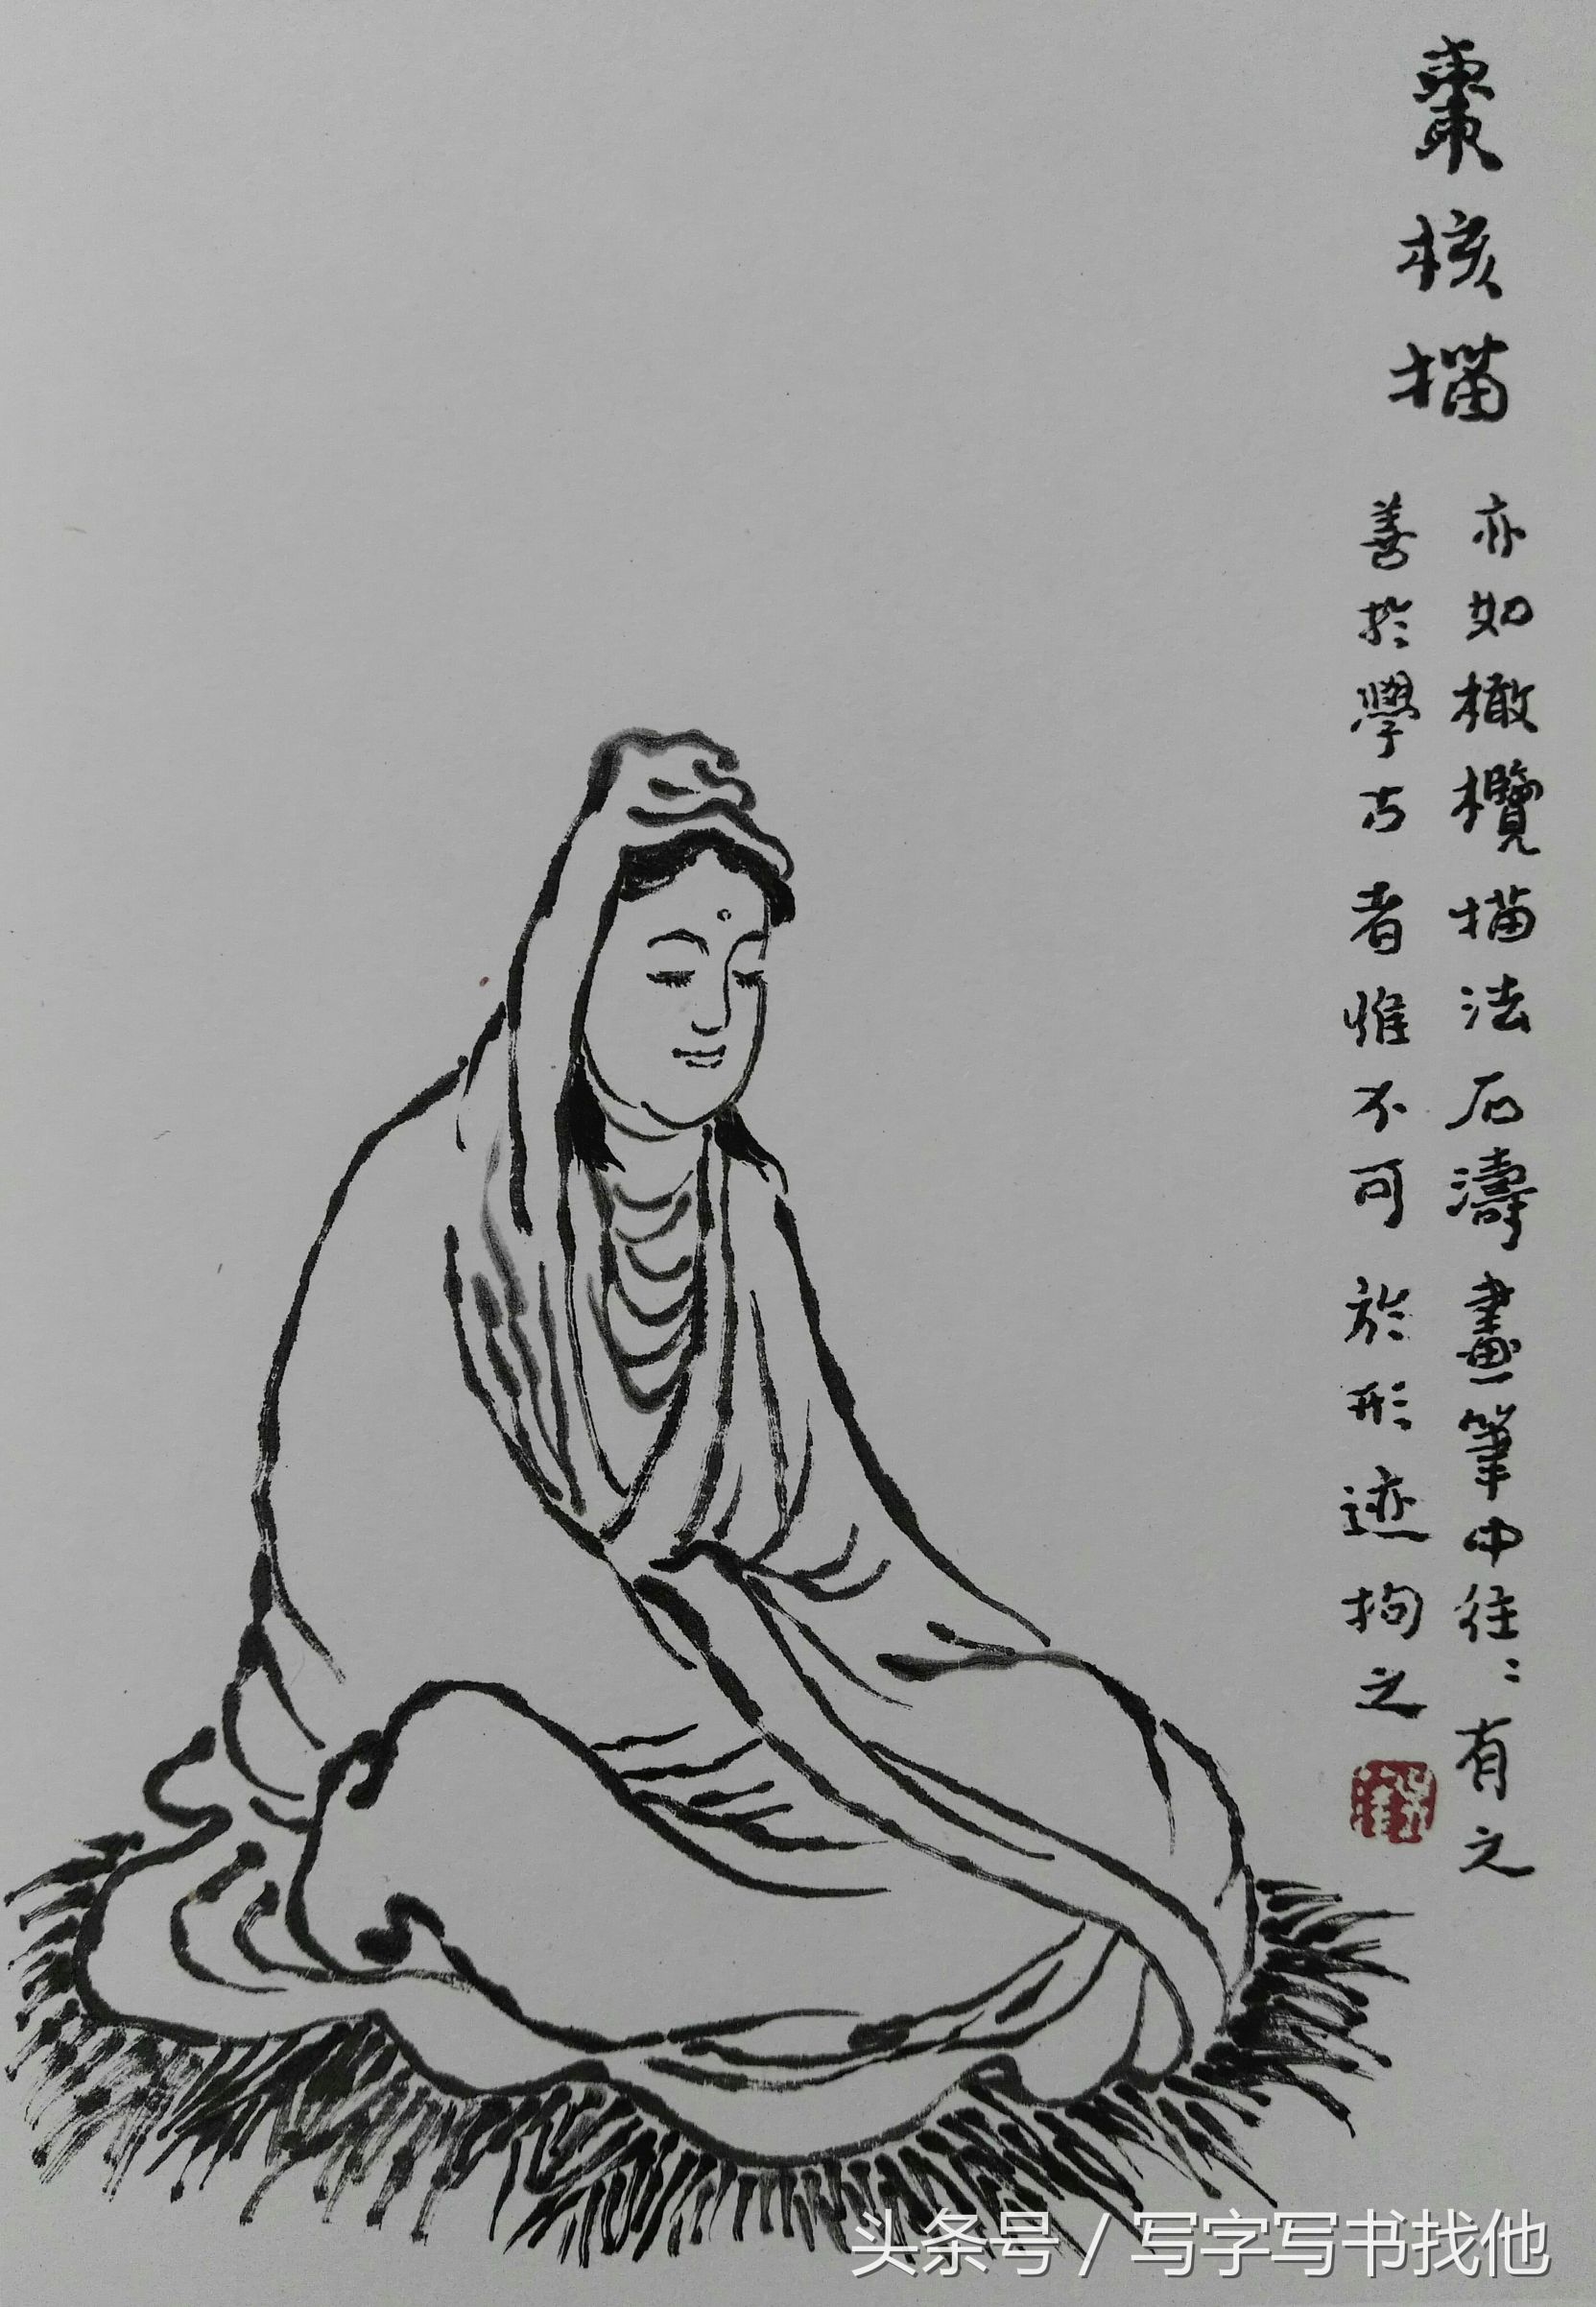 棗核描
亦如橄欖描法石濤畫筆中往〻有之
善於學古者惟不可於形迹拘之
头条号 / 写字写书找他